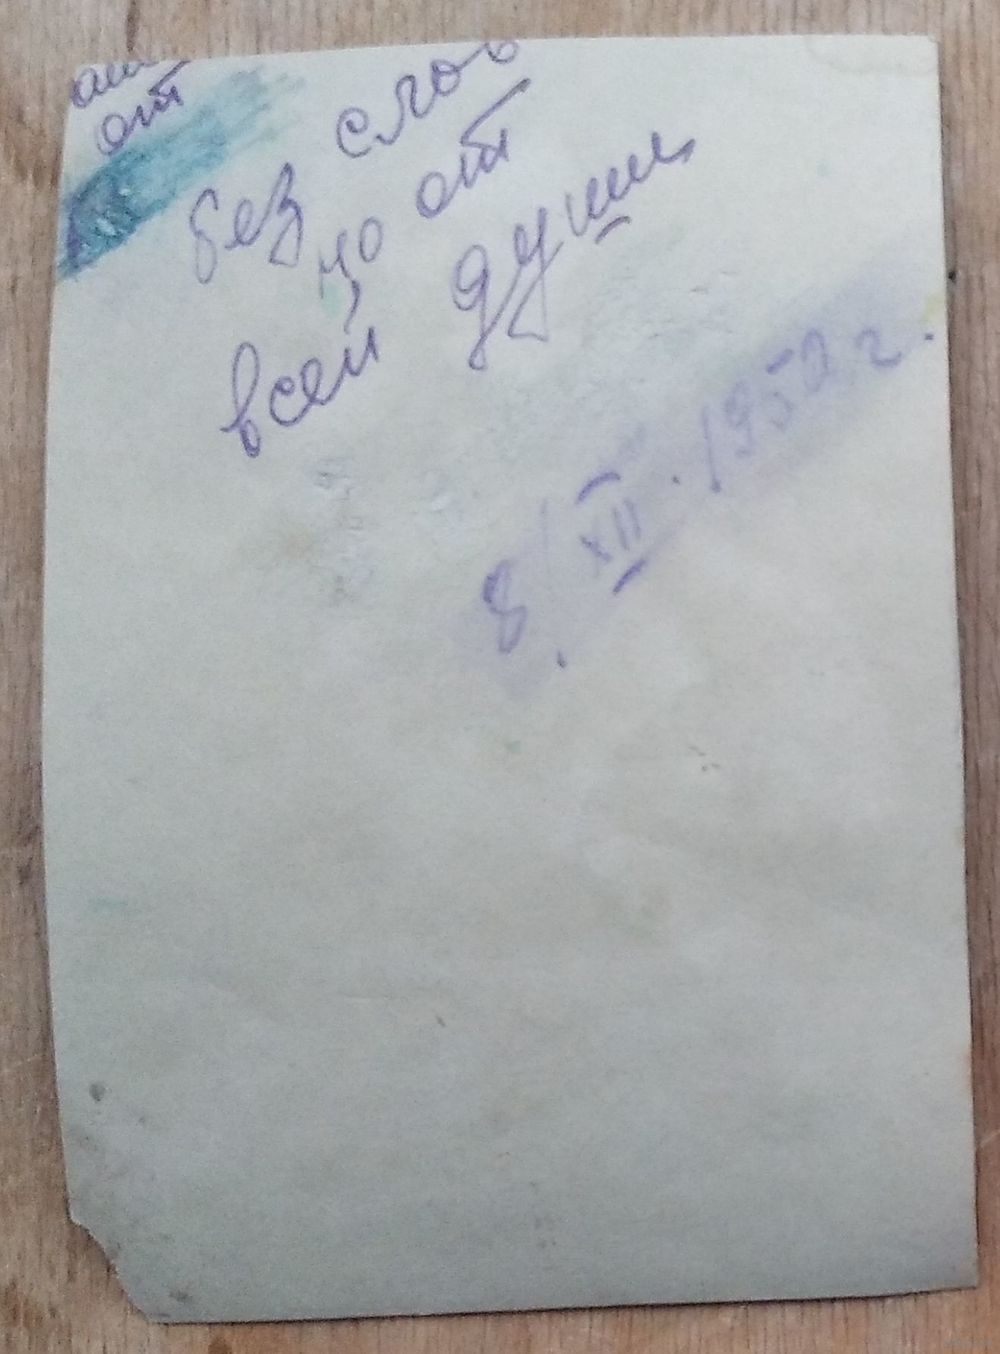 от
без слов
но от
всей души
8/XII. 1952 г.